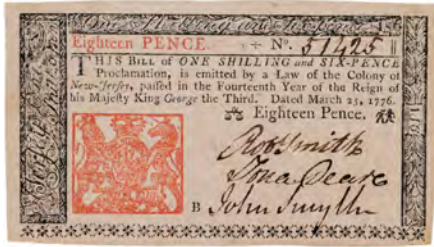 One Shilling and Six-pence.
Eighteen PENCE. No. 51425
THIS BILL of ONE SHILLING and SIX-PENCE
Proclamation, is emitted by a Law of the Colony of
New-Jersey, passed in the Fourteenth Year of the Reign of
his Majesty King George the Third. Dated March 25, 1776.
Eighteen Pence.
Robt Smith
Jona Deare
B John Smyth